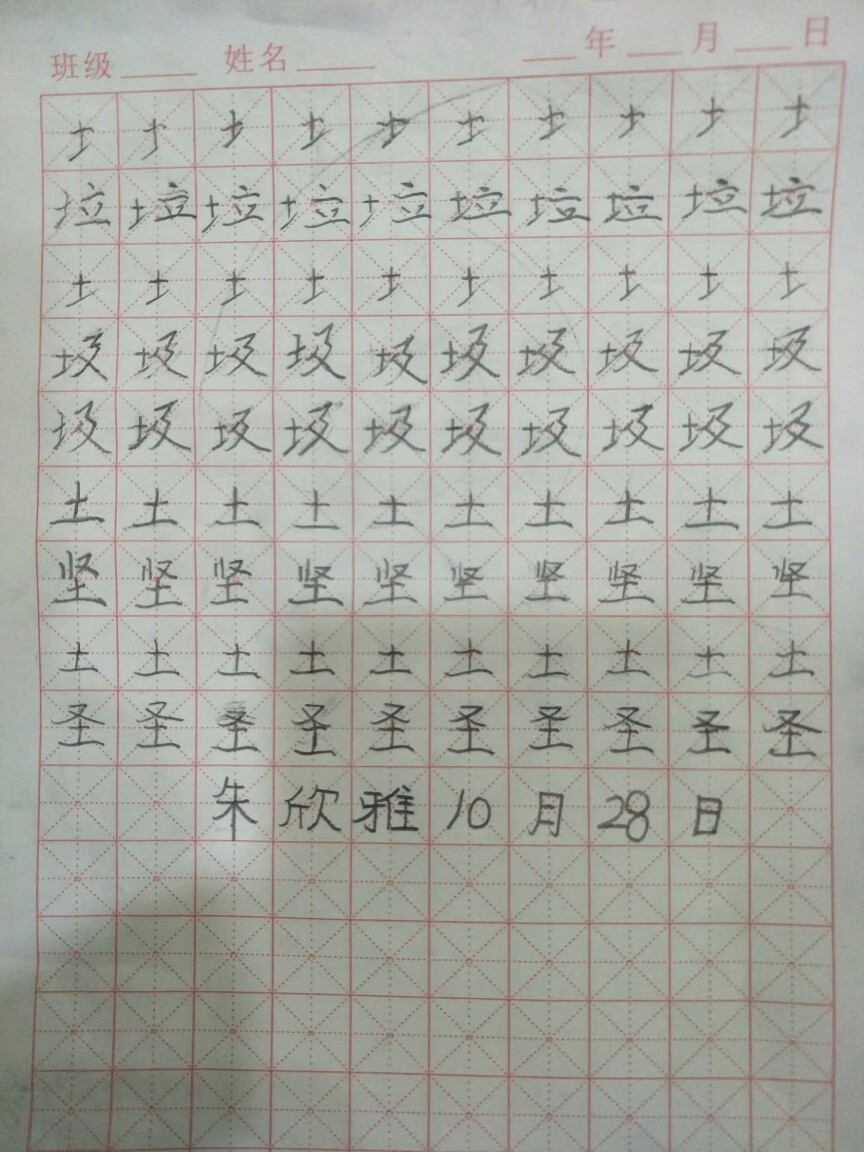 班级 姓名 年 月 日
土 土 土 土 土 土 土 土 土 土
垃 垃 垃 垃 垃 垃 垃 垃 垃 垃
土 土 土 土 土 土 土 土 土 土
圾 圾 圾 圾 圾 圾 圾 圾 圾 圾
圾 圾 圾 圾 圾 圾 圾 圾 圾 圾
土 土 土 土 土 土 土 土 土 土
坚 坚 坚 坚 坚 坚 坚 坚 坚 坚
土 土 土 土 土 土 土 土 土 土
圣 圣 圣 圣 圣 圣 圣 圣 圣 圣
朱 欣 雅 10 月 28 日